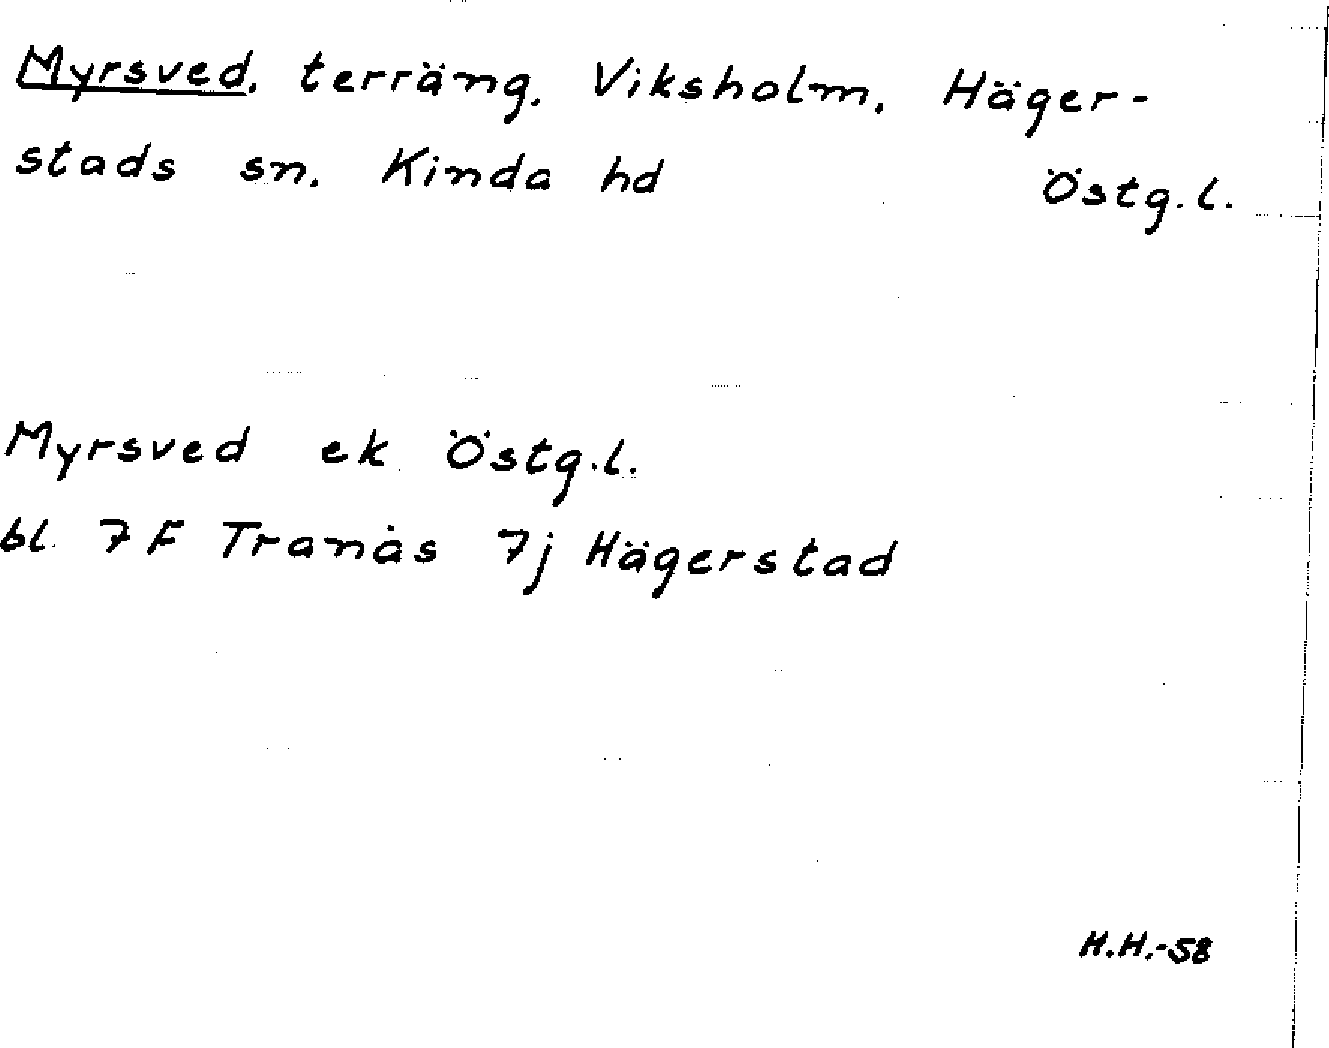 Myrsved, terräng, Viksholm, Häger-
stads sn, Kinda hd Östg.l.
Myrsved ek Östg.l.
bl 7F Tranås 7j Hägerstad
H.H.-58